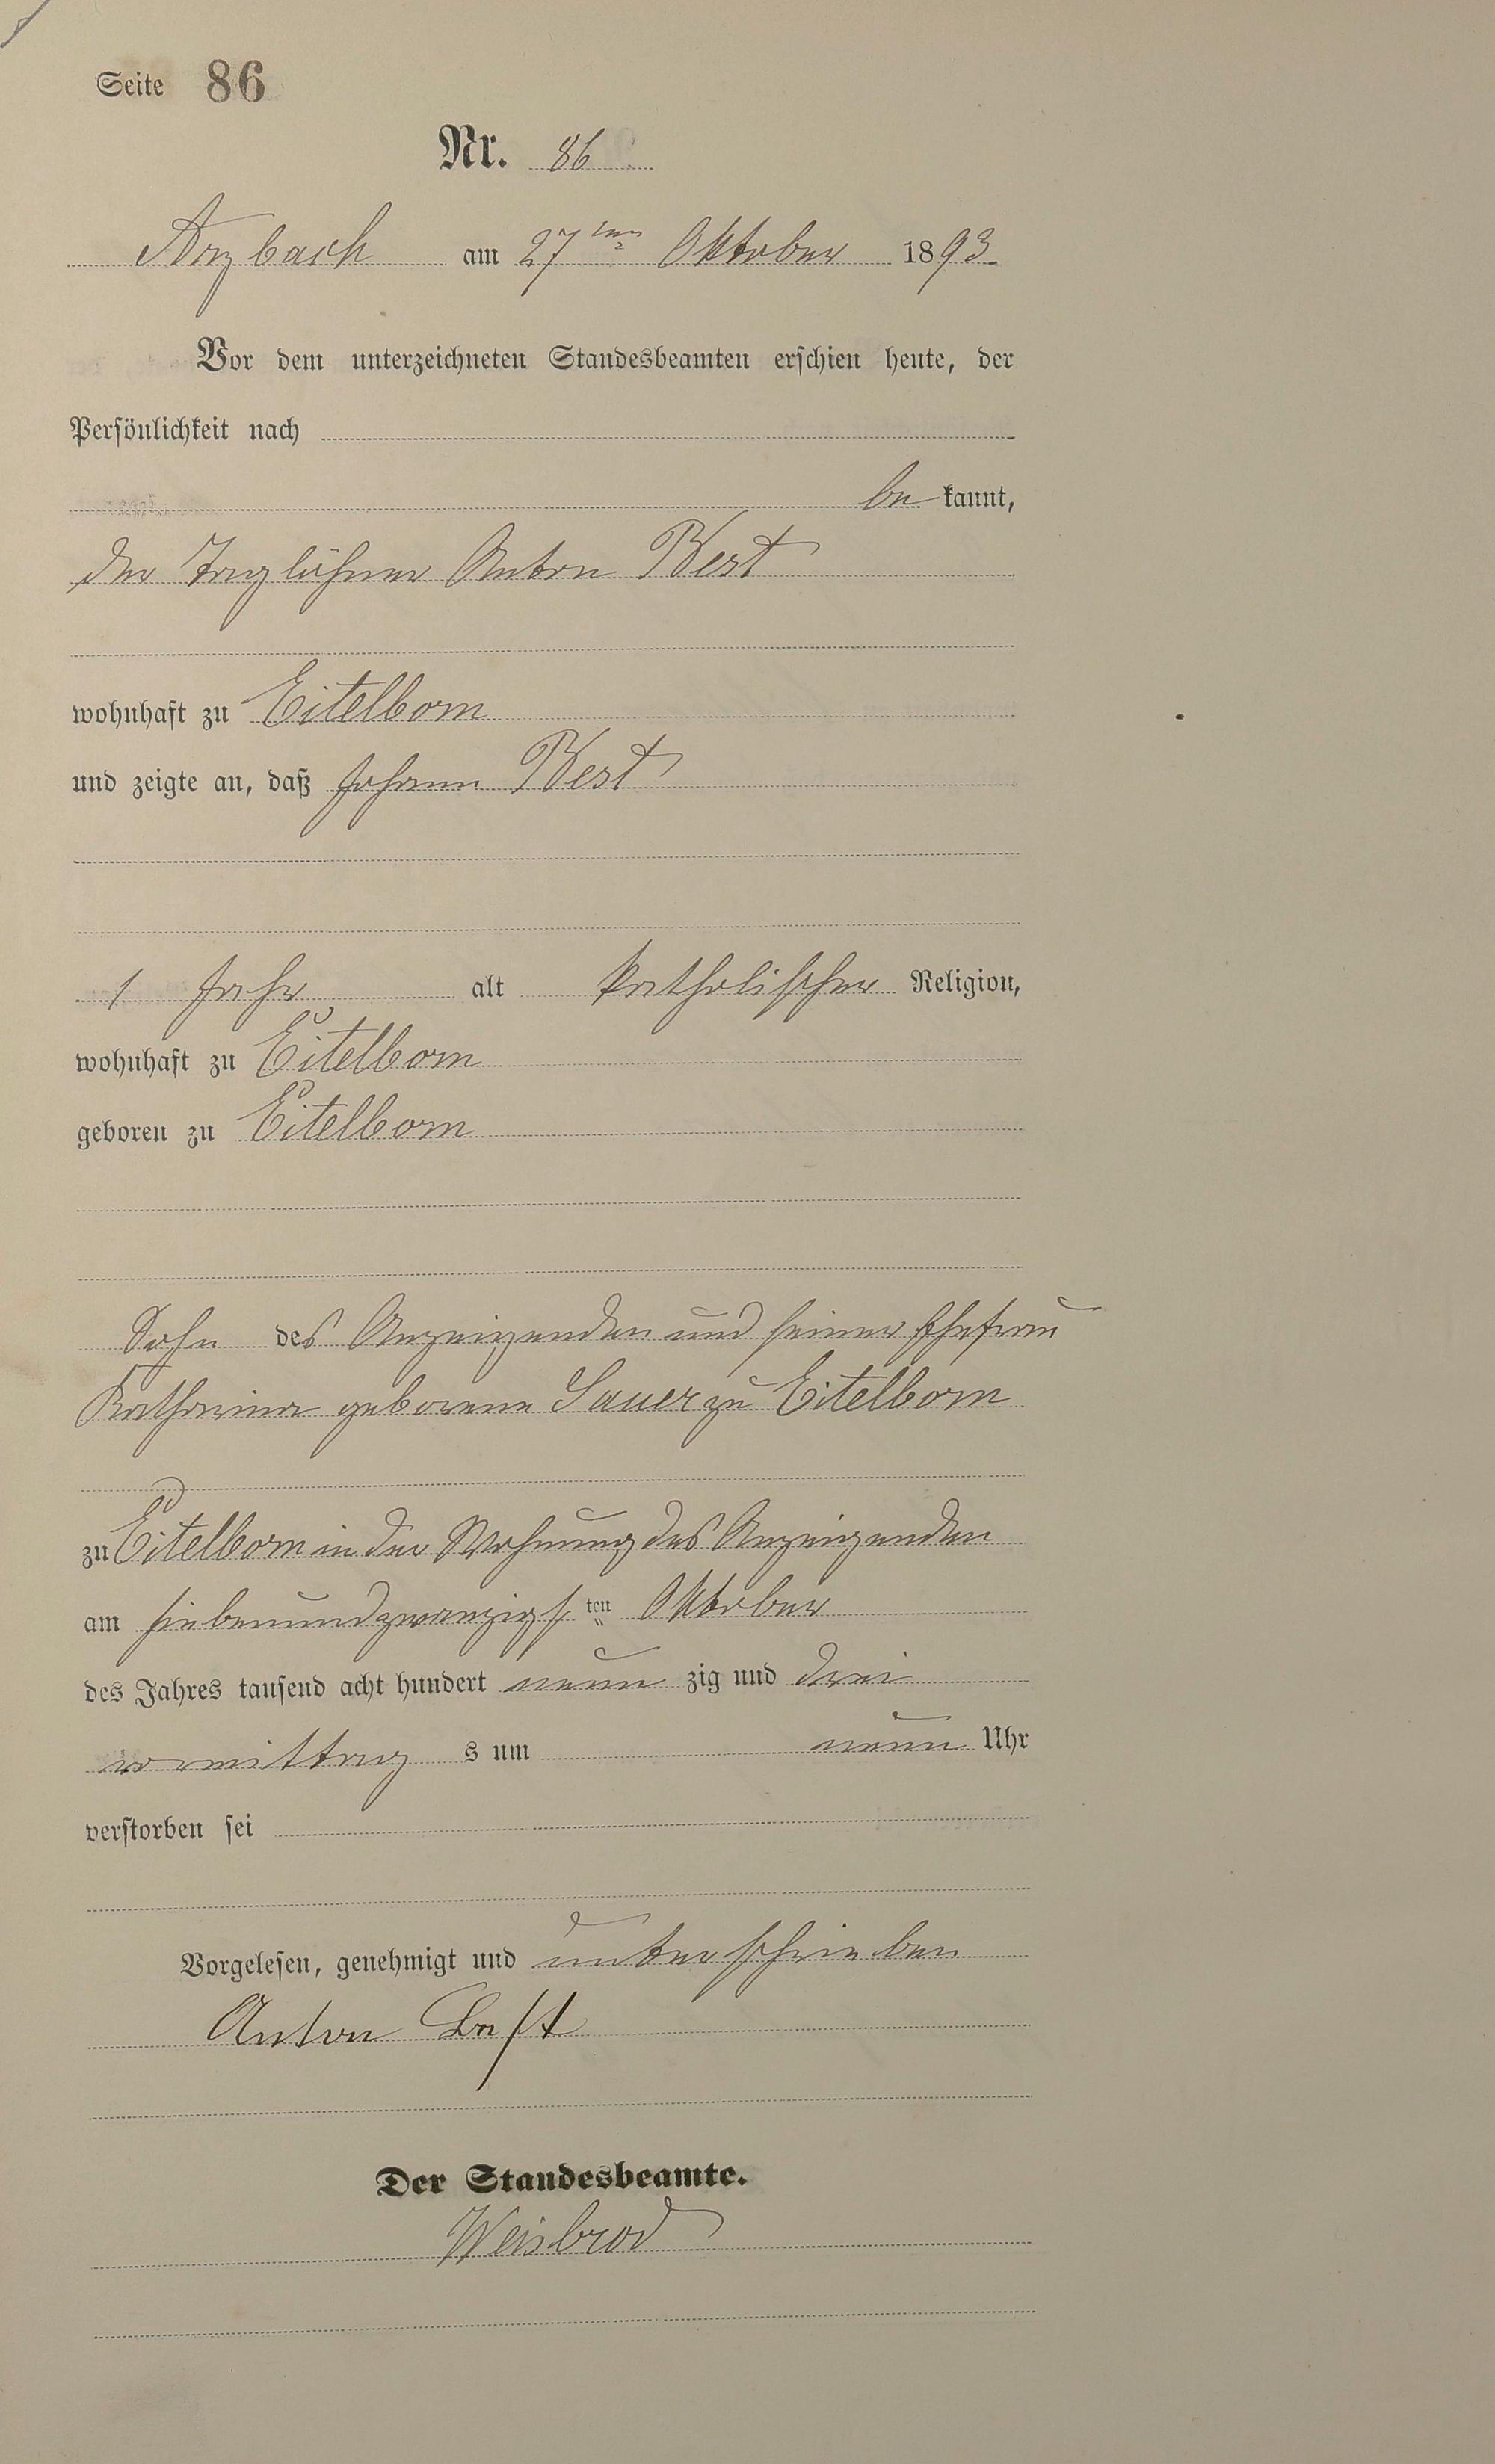 Seite 86
Nr. 86
Arzbach am 27ten Oktober 1893.
Vor dem unterzeichneten Standesbeamten erschien heute, der
Persönlichkeit nach
be kannt,
der Taglöhner Anton Best
wohnhaft zu Eitelborn
und zeigte an, daß Johann Best
1 Jahr alt katholischer Religion,
wohnhaft zu Eitelborn
geboren zu Eitelborn
Sohn des Anzeigenden und seiner Ehefrau
Katharina geborene Sauer zu Eitelborn
zu Eitelborn in der Wohnung des Anzeigenden
am siebenundzwanzigsten Oktober
des Jahres tausend acht hundert neun zig und drei
vormittag s um neun Uhr
verstorben sei
Vorgelesen, genehmigt und unterschrieben
Anton Best
Der Standesbeamte.
Weisbrod